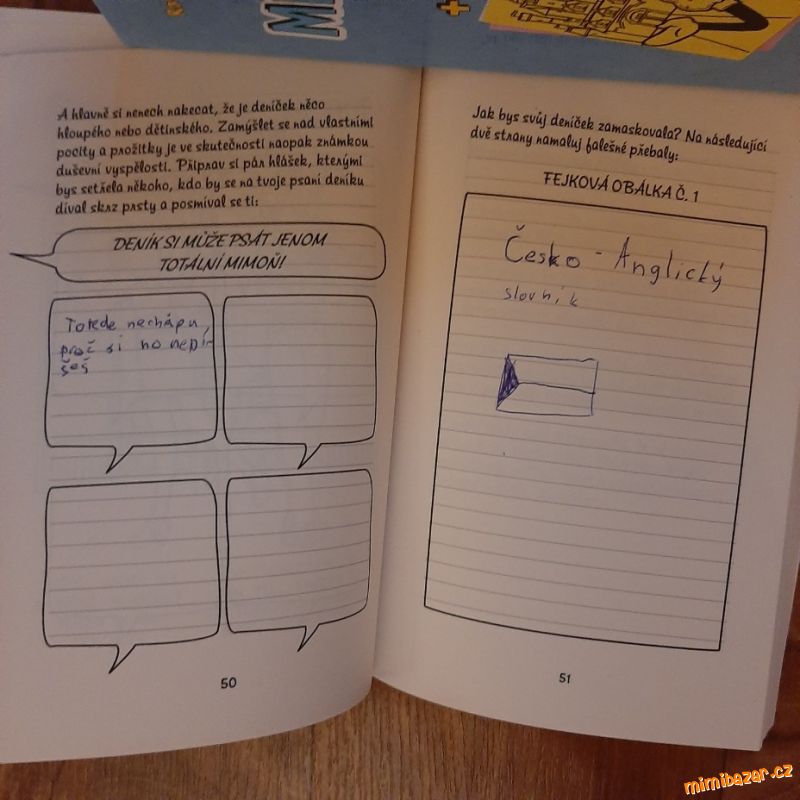 A hlavně si nenech nakecat, že je deníček něco
hloupého nebo dětinského. Zamýšlet se nad vlastními
pocity a prožitky je ve skutečnosti naopak známkou
duševní vyspělosti. Připrav si pár hlášek, kterými
bys setřela někoho, kdo by se na tvoje psaní deníku
díval skrz prsty a posmíval se ti:
DENÍK SI MŮŽE PSÁT JENOM
TOTÁLNÍ MIMOŇ!
Totede nechápu,
proč si ho nepí-
šeš
50
Jak bys svůj deníček zamaskovala? Na následující
dvě strany namaluj falešné přebaly:
FEJKOVÁ OBÁLKA Č. 1
Česko - Anglický
slovník
51
mimibazar.cz